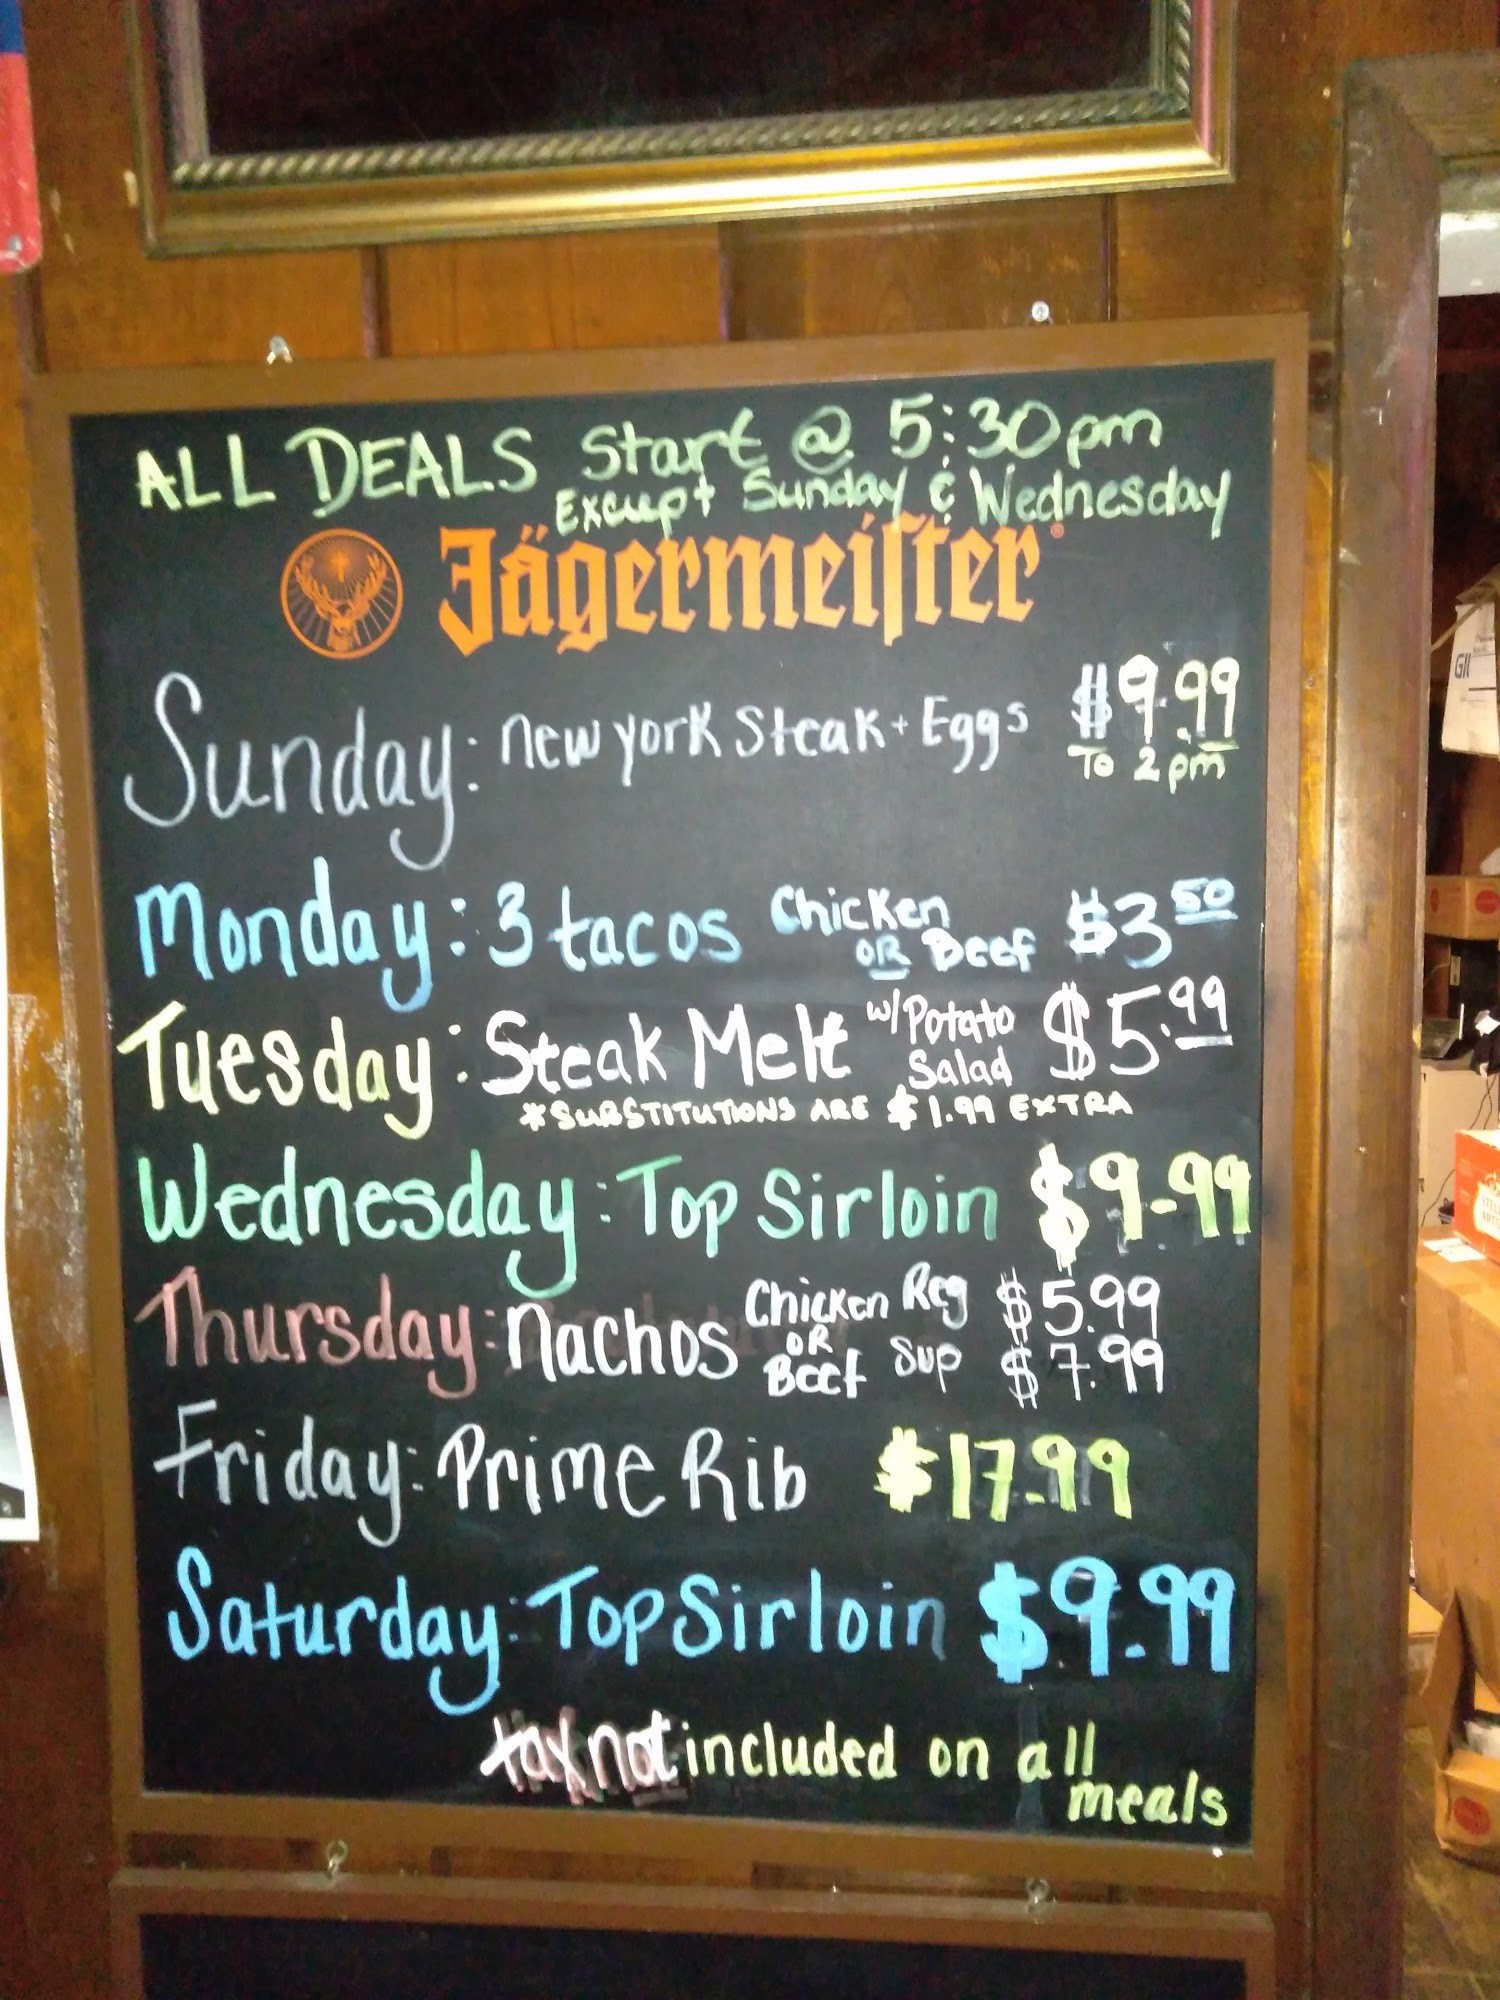 ALL DEALS Start @ 5:30pm
Except Sunday & Wednesday
Jägermeiſter®
Sunday: New york Steak + Eggs $9.99
To 2pm
Monday: 3 tacos Chicken OR Beef $3.50
Tuesday: Steak Melt w/Potato Salad $5.99
*SUBSTITUTIONS ARE $1.99 EXTRA
Wednesday: Top Sirloin $9.99
Thursday: Nachos Chicken OR Beef Reg $5.99
Sup $7.99
Friday: Prime Rib $17.99
Saturday: Top Sirloin $9.99
tax not included on all
meals